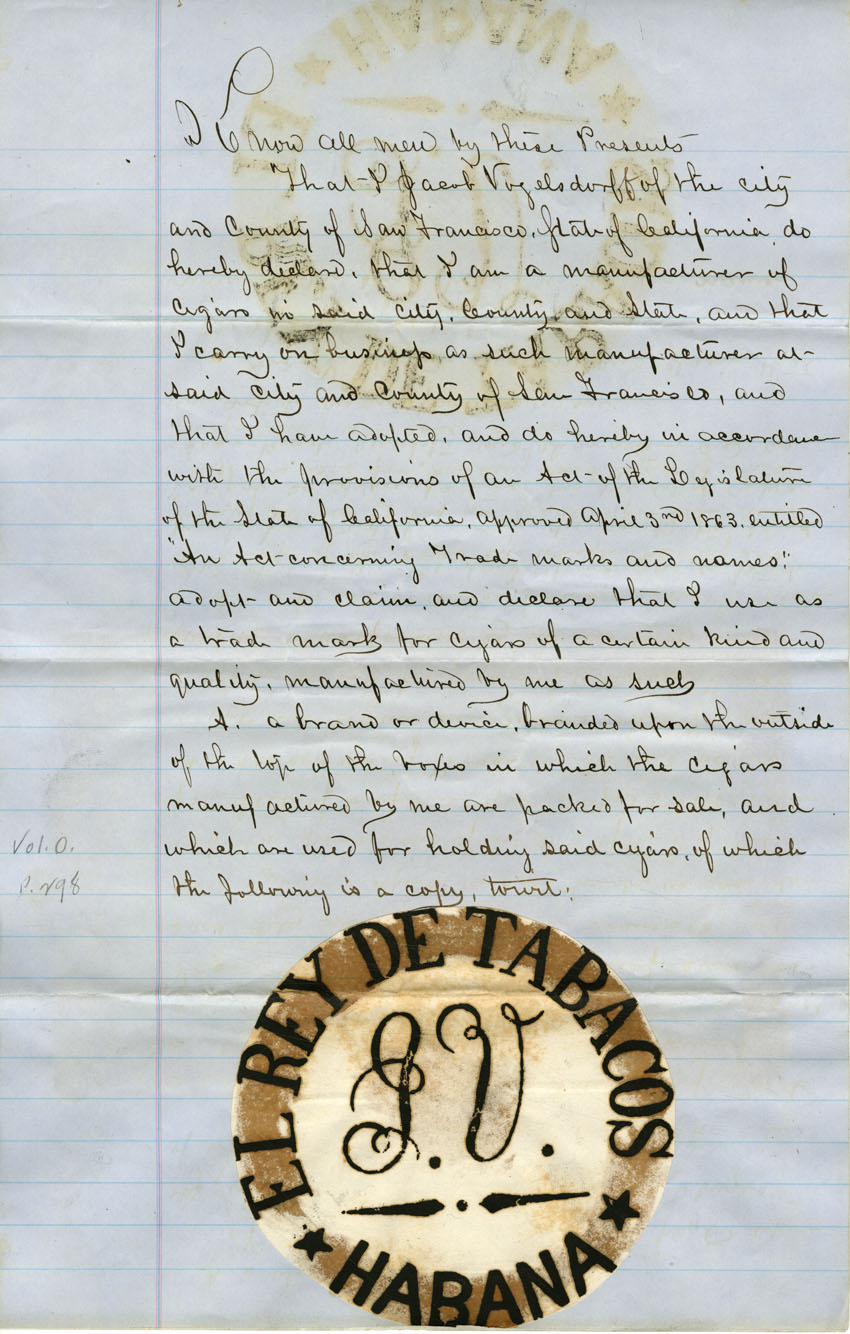 Know all men by these Presents
That I Jacob Vogelsdorff of the city
and County of San Francisco, State of California, do
hereby declare, that I am a manufacturer of
cigars in said city, County, and State, and that
I carry on business as such manufacturer at
said City and County of San Francisco, and
that I have adopted, and do hereby in accordance
with the provisions of an Act of the Legislature
of the State of California, approved April 3rd 1863, entitled
"An Act concerning Trade marks and names,"
adopt and claim, and declare that I use as
a trade mark for cigars of a certain kind and
quality, manufactured by me as such
A. a brand or device, branded upon the outside
of the top of the boxes in which the cigars
manufactured by me are packed for sale, and
which are used for holding said cigars, of which
the following is a copy, towit:
Vol. O.
P. 298
EL REY DE TABACOS
J.V.
HABANA